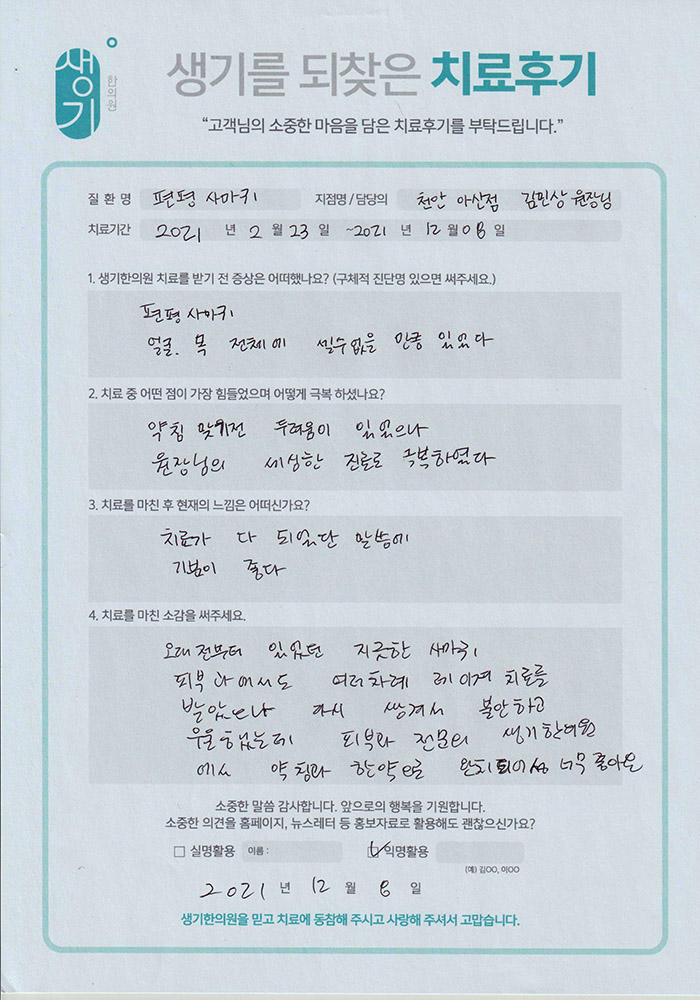 생기 한의원
생기를 되찾은 치료후기
“고객님의 소중한 마음을 담은 치료후기를 부탁드립니다.”
질 환 명 편평 사마귀 지점명 / 담당의 천안 아산점 김민상 원장님
치료기간 2021 년 2 월 23 일 ~2021 년 12 월 08 일
1. 생기한의원 치료를 받기 전 증상은 어떠했나요? (구체적 진단명 있으면 써주세요.)
편평 사마귀
얼굴. 목 전체에 셀수없을 만큼 있었다
2. 치료 중 어떤 점이 가장 힘들었으며 어떻게 극복 하셨나요?
약침 맞기전 두려움이 있었으나
원장님의 세심한 진료로 극복하였다
3. 치료를 마친 후 현재의 느낌은 어떠신가요?
치료가 다 되었단 말씀에
기분이 좋다
4. 치료를 마친 소감을 써주세요.
오래전부터 있었던 지긋한 사마귀
피부과에서도 여러차례 레이져 치료를
받았으나 다시 생겨서 불안하고
우울했는데 피부과 전문의 생기한의원
에서 약침과 한약으로 완치되어서 너무 좋아요
소중한 말씀 감사합니다. 앞으로의 행복을 기원합니다.
소중한 의견을 홈페이지, 뉴스레터 등 홍보자료로 활용해도 괜찮으신가요?
□ 실명활용 이름 : ☑ 익명활용
(예) 김OO, 이OO
2021 년 12 월 8 일
생기한의원을 믿고 치료에 동참해 주시고 사랑해 주셔서 고맙습니다.